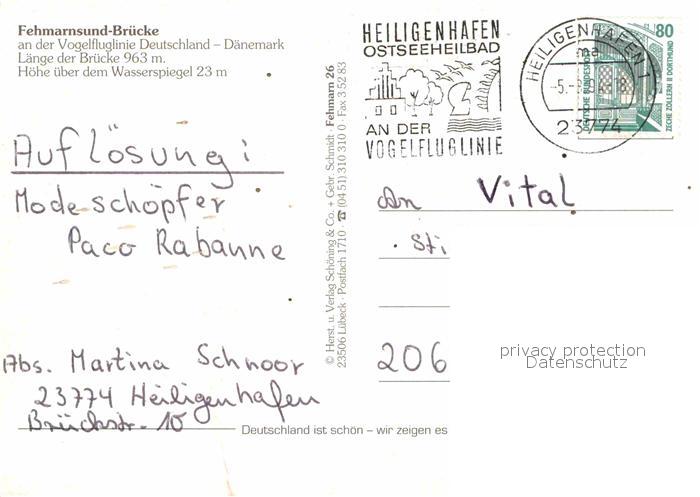 Fehmarnsund-Brücke
an der Vogelfluglinie Deutschland – Dänemark
Länge der Brücke 963 m.
Höhe über dem Wasserspiegel 23 m
Auflösung:
Modeschöpfer
Paco Rabanne
Abs. Martina Schnoor
23774 Heiligenhafen
Brückstr. 10
Deutschland ist schön – wir zeigen es
© Herst. u. Verlag Schöning & Co. + Gebr. Schmidt · Fehmarn 26
23506 Lübeck · Postfach 1710 · ☎ (04 51) 310 310 0 · Fax 3 52 83
HEILIGENHAFEN
OSTSEEHEILBAD
AN DER
VOGELFLUGLINIE
HEILIGENHAFEN 1
ma
23774
80
DEUTSCHE BUNDESPOST
ZECHE ZOLLERN II DORTMUND
An Vital
206
privacy protection
Datenschutz